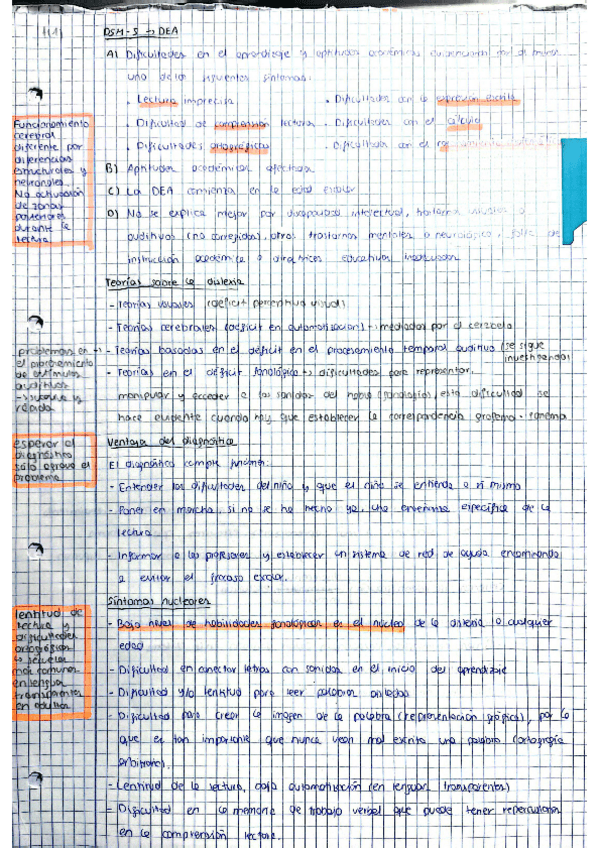 DSM-5 → DEA
A) Dificultades en el aprendizaje y aptitudes académicas evidenciado por al menos
uno de los siguientes síntomas:
· Lectura imprecisa
· Dificultades con la expresión escrita
· Dificultad de comprensión lectora
· Dificultades con el cálculo
· Dificultades ortográficas
· Dificultades con el
B) Aptitudes académicas afectadas
C) La DEA comienza en la edad escolar
D) No se explica mejor por discapacidad intelectual, trastornos visuales o
auditivos (no corregidos), otros trastornos mentales o neurológicos, falta de
instrucción académica o directrices educativas inadecuadas
Funcionamiento
cerebral
diferente por
diferencias
estructurales y
neuronales.
No activación
de zonas
posteriores
durante la
lectura
Teorías sobre la dislexia
- Teorías visuales (déficit perceptivo visual)
- Teorías cerebrales (déficit en automatización) → mediadas por el cerebelo
- Teorías basadas en el déficit en el procesamiento temporal auditivo (se sigue
investigando)
- Teorías en el déficit fonológico → dificultades para representar,
manipular y acceder a los sonidos del habla (fonologías), esta dificultad se
hace evidente cuando hay que establecer la correspondencia grafema-fonema
problemas en →
el procesamiento
de estímulos
auditivos
→ sucesiva y
rápida
Ventajas del diagnóstico
El diagnóstico cumple funciones:
- Entender las dificultades del niño y que el niño se entienda a sí mismo
- Poner en marcha, si no se ha hecho ya, una enseñanza específica de la
lectura
- Informar a los profesores y establecer un sistema de red de ayuda encaminada
a evitar el fracaso escolar.
esperar al
diagnóstico
sólo agrava el
problema
Síntomas nucleares
- Bajo nivel de habilidades fonológicas es el núcleo de la dislexia a cualquier
edad
- Dificultad en conectar letras con sonidos en el inicio del aprendizaje
- Dificultad y/o lentitud para leer palabras aisladas
- Dificultad para crear la imagen de la palabra (representación gráfica), por lo
que es tan importante que nunca vean mal escrita una palabra (ortografía
arbitraria).
- Lentitud de la lectura, baja automatización (en lenguas transparentes)
- Dificultad en la memoria de trabajo verbal que puede tener repercusiones
en la comprensión lectora.
lentitud de
lectura y
dificultades
ortográficas
la secuela
más comunes
en lenguas
transparentes
en adultos